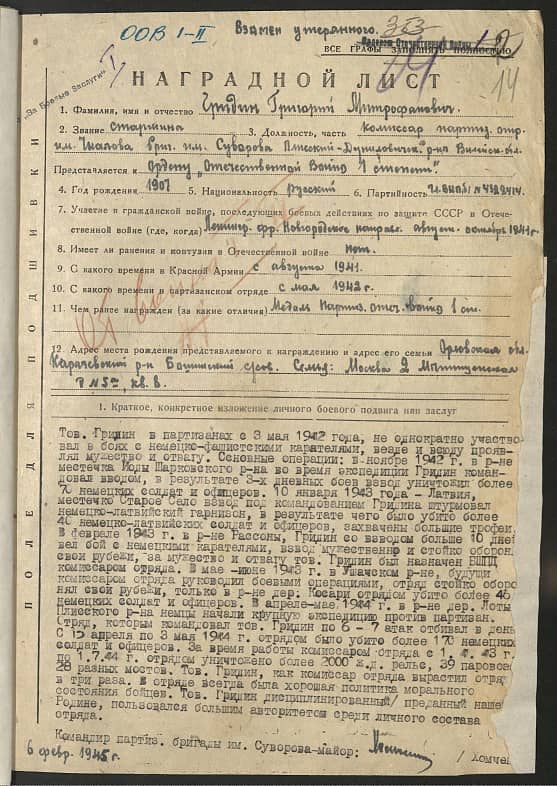 ООВ I-II
Взамен утерянного.
353
Орденом Отечественной Войны
ВСЕ ГРАФЫ ЗАПОЛНЯТЬ ПОЛНОСТЬЮ
14
"За Боевые Заслуги"
НАГРАДНОЙ ЛИСТ
1. Фамилия, имя и отчество Гридин Григорий Митрофанович.
2. Звание старшина 3. Должность, часть комиссар партиз. отр.
им. Чкалова бриг. им. Суворова Плисский-Дуниловичск. р-на Вилейск. обл.
Представляется к Ордену „Отечественной Войны 1 степени".
4. Год рождения 1907 5. Национальность русский 6. Партийность
7. Участие в гражданской войне, последующих боевых действиях по защите СССР в Отече-
ственной войне (где, когда) Ленингр. фр. Новгородское направл. август. октябрь 1941г.
8. Имеет ли ранения и контузии в Отечественной войне нет.
9. С какого времени в Красной Армии с августа 1941.
10. С какого времени в партизанском отряде с мая 1942 г.
11. Чем ранее награжден (за какие отличия) Медаль Партиз. отеч. войны 1 ст.
12 Адрес места рождения представляемого к награждению и адрес его семьи Орловская обл.
Карачевский р-н Семья: Москва 2 Мытищенская
д N5а, кв. 8.
1. Краткое, конкретное изложение личного боевого подвига или заслуг
Тов. Гридин в партизанах с 3 мая 1942 года, не однократно участво
вал в боях с немецко-фашистскими карателями, везде и всюду прояв-
лял мужество и отвагу. Основные операции: в ноябре 1942 г. в р-не
местечка Иоды Шарковского р-на во время экспедиции Гридин коман-
довал взводом, в результате 3-х дневных боев взвод уничтожил более
70 немецких солдат и офицеров. 10 января 1943 года - Латвия,
местечко Старое Село взвод под командованием Гридина штурмовал
немецко-латвийский гарнизон, в результате чего было убито более
40 немецко-латвийских солдат и офицеров, захвачены большие трофеи.
В феврале 1943 г. в р-не Рассоны, Гридин со взводом больше 10 дней
вел бой с немецкими карателями, взвод мужественно и стойко оборон
свои рубежи, за мужество и отвагу тов. Гридин был назначен БШПД
комиссаром отряда. В мае -июне 1943 г. в Ушачском р-не, будучи
комиссаром отряда руководил боевыми операциями, отряд стойко оборо
нял свои рубежи, только в р-не дер. Косари отрядом убито более 40
немецких солдат и офицеров. В апреле-мае 1944 г. в р-не дер. Лоты
Плисского р-на немцы начали крупную экспедицию против партизан.
Отряд, которым командовал тов. Гридин по 6 - 7 атак отбивал в день
С 15 апреля по 3 мая 1944 г. отрядом было убито более 170 немецких
солдат и офицеров. За время работы комиссаром отряда с 1. 43 г.
по 1.7.44 г. отрядом уничтожено более 2000 ж.д. рельс, 39 паровозо
28 разных мостов. Тов. Гридин, как комиссар отряда вырастил отря
в три раза. В отряде всегда была хорошая политика морального
состояния бойцев. Тов. Гридин дисциплинированный/ преданный наше
Родине, пользовался большим авторитетом среди личного состава
отряда.
Командир партиз. бригады им. Суворова-майор: /Хомчен
6 февр. 1945 г.
ПОЛЕ ДЛЯ ПОДШИВКИ